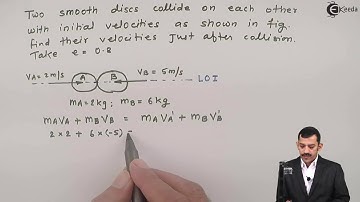 Two smooth discs collide on each other
with initial velocities as shown in fig.
find their velocities just after collision.
Take e = 0.8
VA = 2m/s A B VB = 5m/s LOI
mA = 2kg ; mB = 6kg
mAVA + mBVB = mAVA' + mBVB'
2 × 2 + 6 × (-5) =
Ekeeda